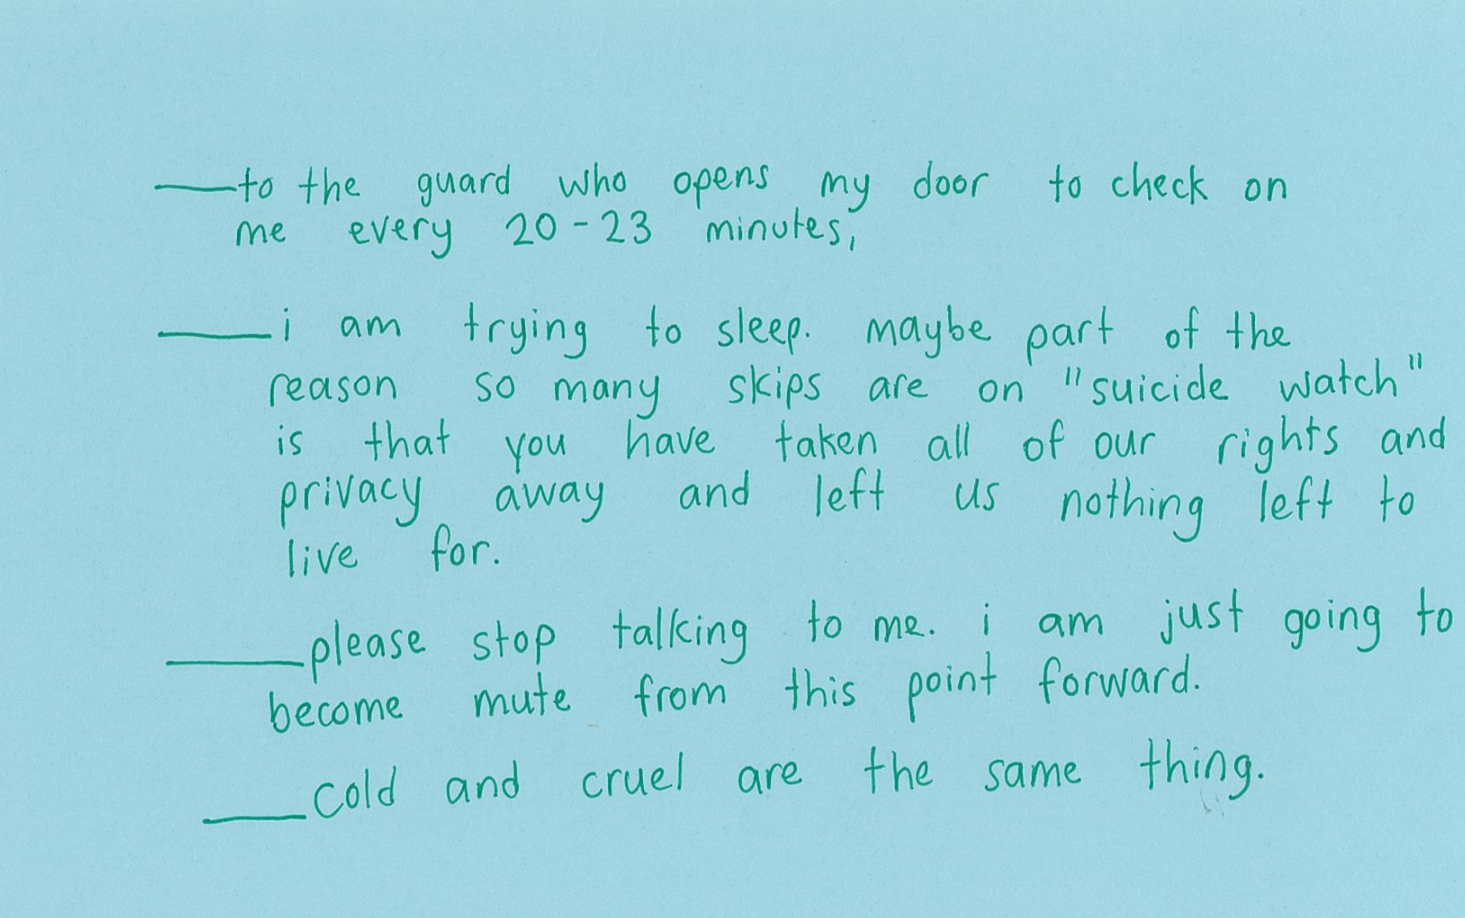 —to the guard who opens my door to check on
me every 20-23 minutes,
—i am trying to sleep. maybe part of the
reason so many skips are on "suicide watch"
is that you have taken all of our rights and
privacy away and left us nothing left to
live for.
—please stop talking to me. i am just going to
become mute from this point forward.
—cold and cruel are the same thing.